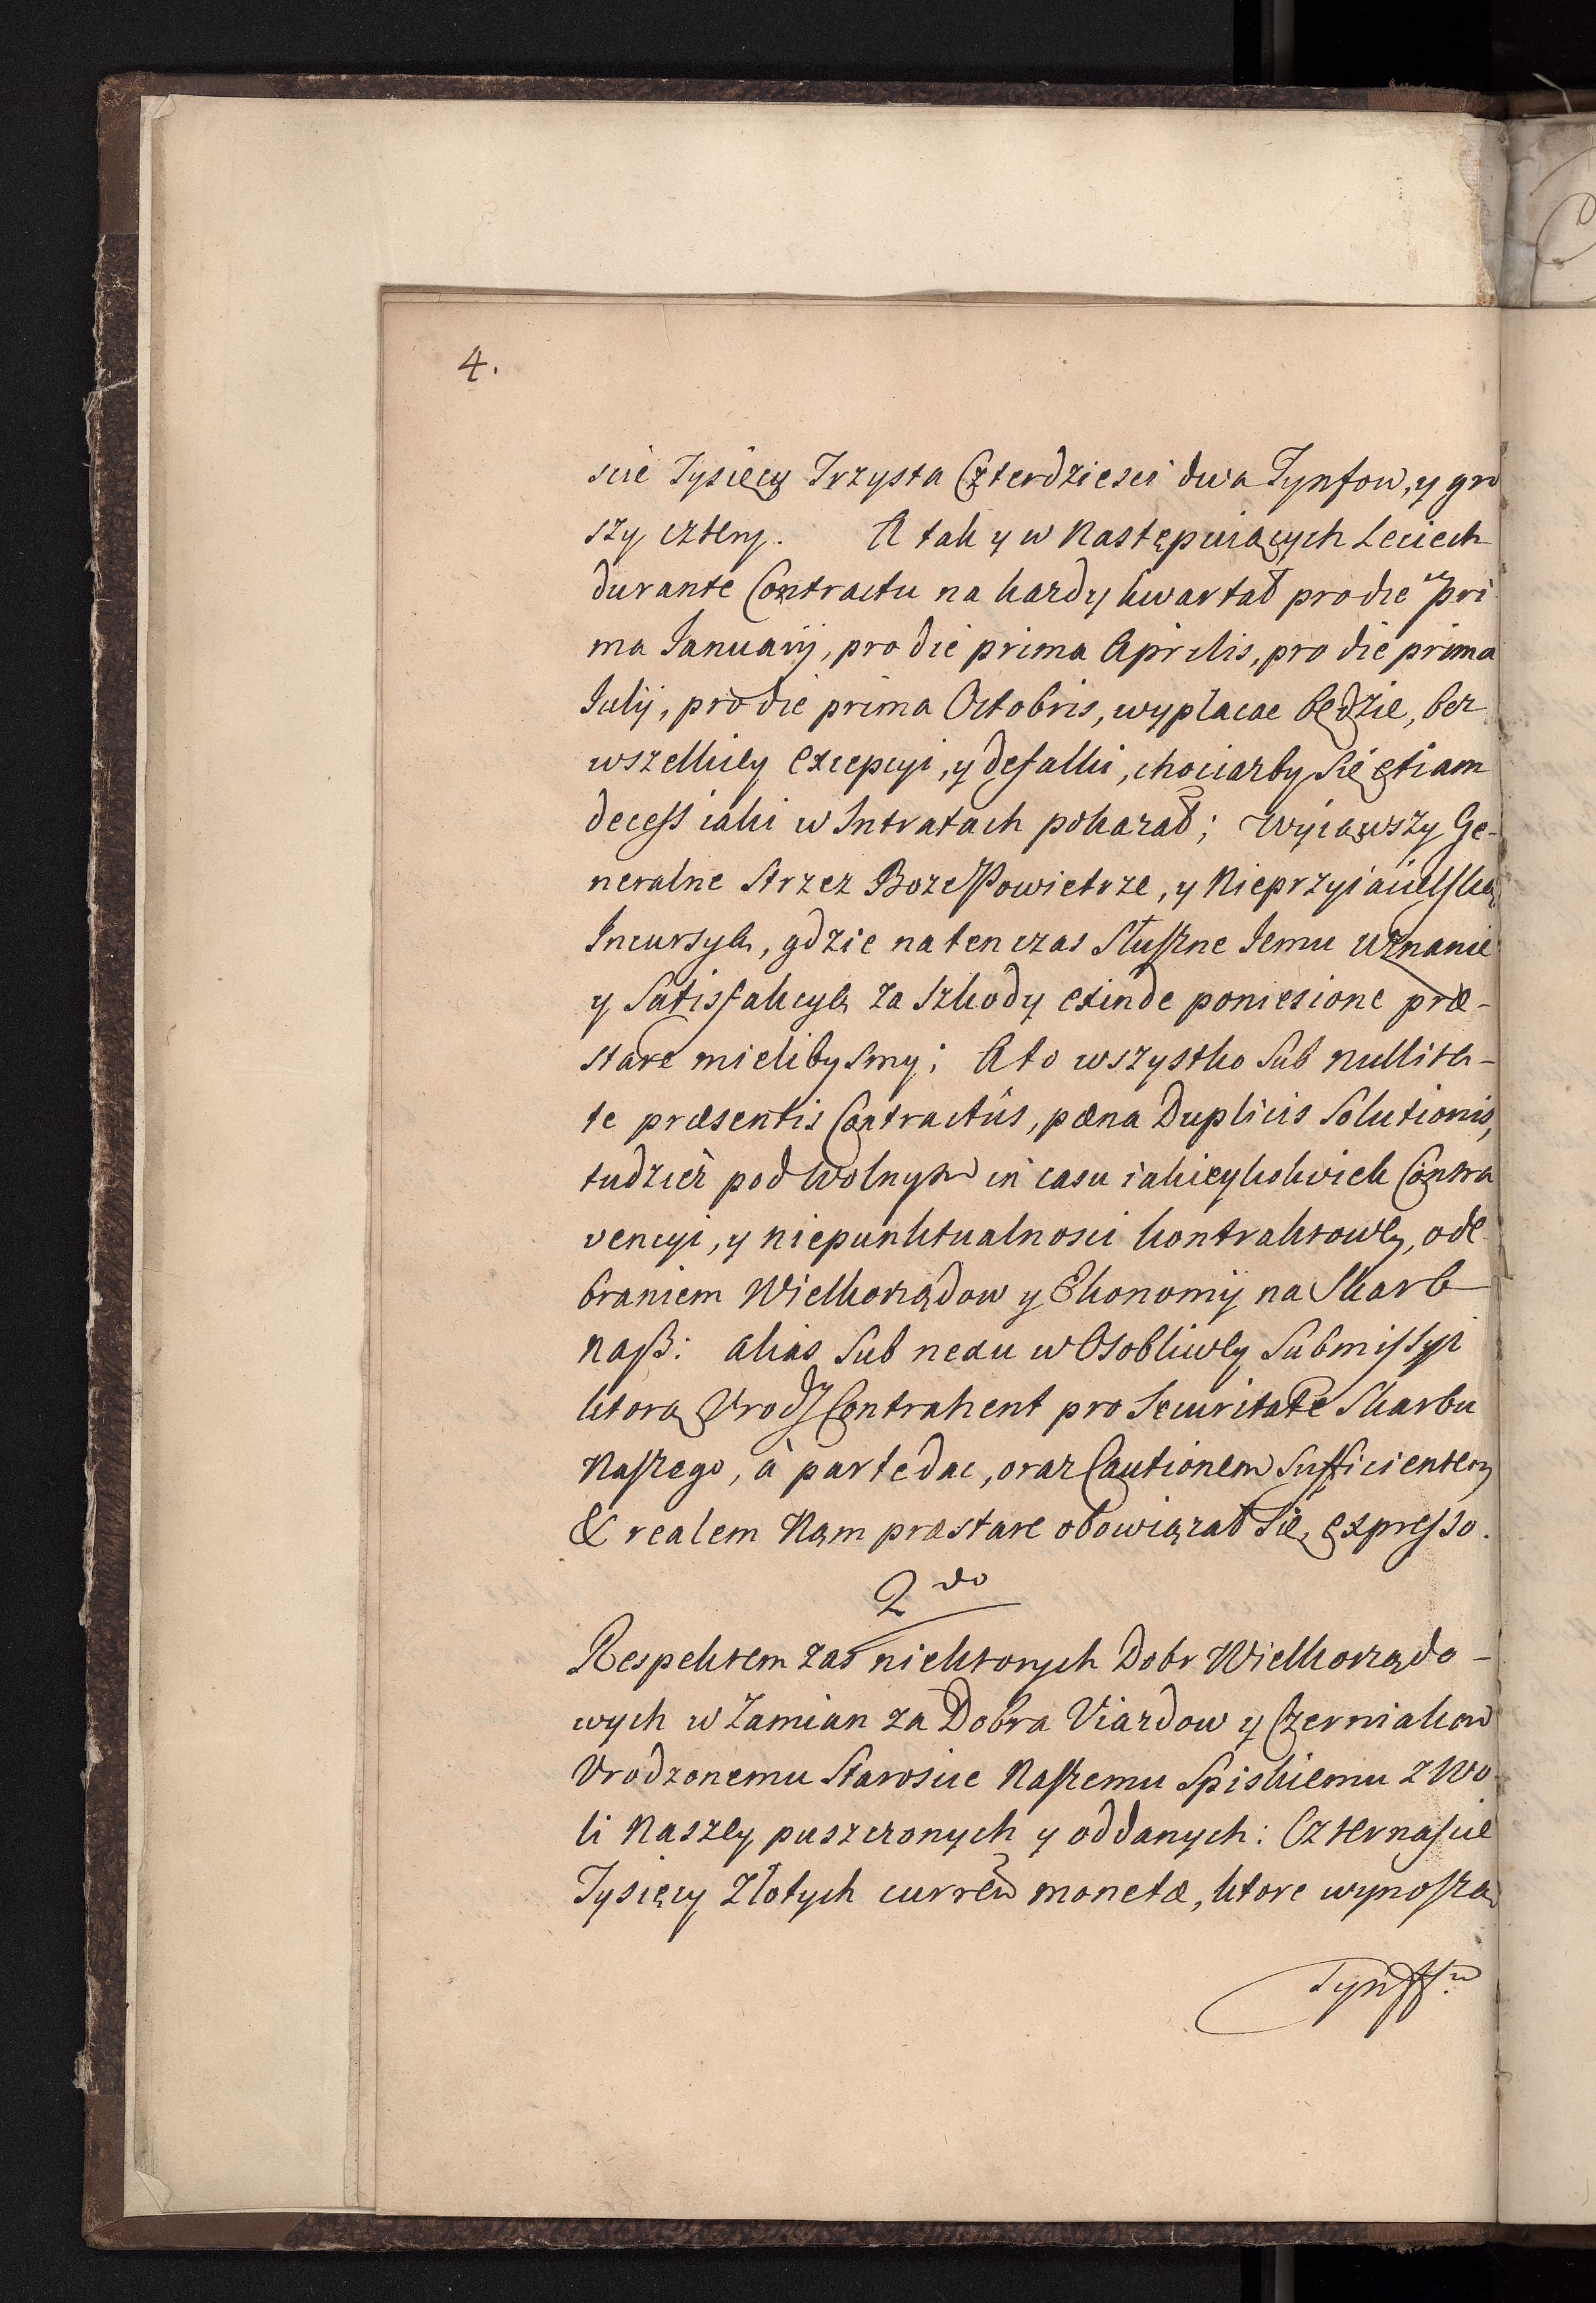 4.
scie Tysięcy Trzysta Czterdziesci dwa Tynfow, y gro
szy cztery. A tak y w Następuiących Leciech
durante Contractu na kazdy kwartał pro die Pri
ma Januarij, pro die prima Aprilis, pro die prima
Julij, pro die prima Octobris, wypłacac będzie, bez
wszelkiey excepcyi, y defalki, chociazby się etiam
decess iaki w Intratach pokazał; wyiąwszy Ge-
neralne Strzez Boze Powietrze, y Nieprzyiacielską
Incursyą, gdzie na ten czas Słuszne Jemu uznanie
y Satisfakcyą za Szkody exinde poniesione præ-
stare mielibysmy; A to wszystko Sub nullita-
te præsentis Contractûs, pæna Duplicis Solutionis,
tudziez pod Wolnym in casu iakieykolwiek Contra
vencyi, y niepunktualnosci kontraktowey, ode
braniem Wielkorządow y Ekonomij na Skarb
Nasz: alias Sub nexu w Osobliwey Submissyi
ktorą Urodz Contrahent pro Securitate Skarbu
Naszego, à parte dac, oraz Cautionem Sufficientem
& realem Nam præstare obowiązał się, expresso.
2do
Respektem zas niektorych Dobr Wielkorządo-
wych w Zamian za Dobra Viazdow y Czerniakow
Urodzonemu Staroscie Naszemu Spiskiemu z Wo
li Naszey puszczonych y oddanych: Czternascie
Tysięcy Złotych curren monetæ, ktore wynoszą
Tynff:w